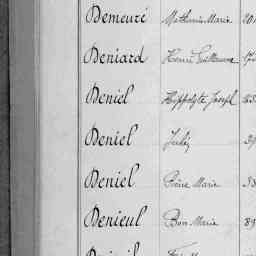 Demeuré Mathurin Marie 201
Deniard Henri Guillaume
Deniel Hippolyte Joseph
Deniel Julien
Deniel Pierre Marie
Denieul Bon Marie